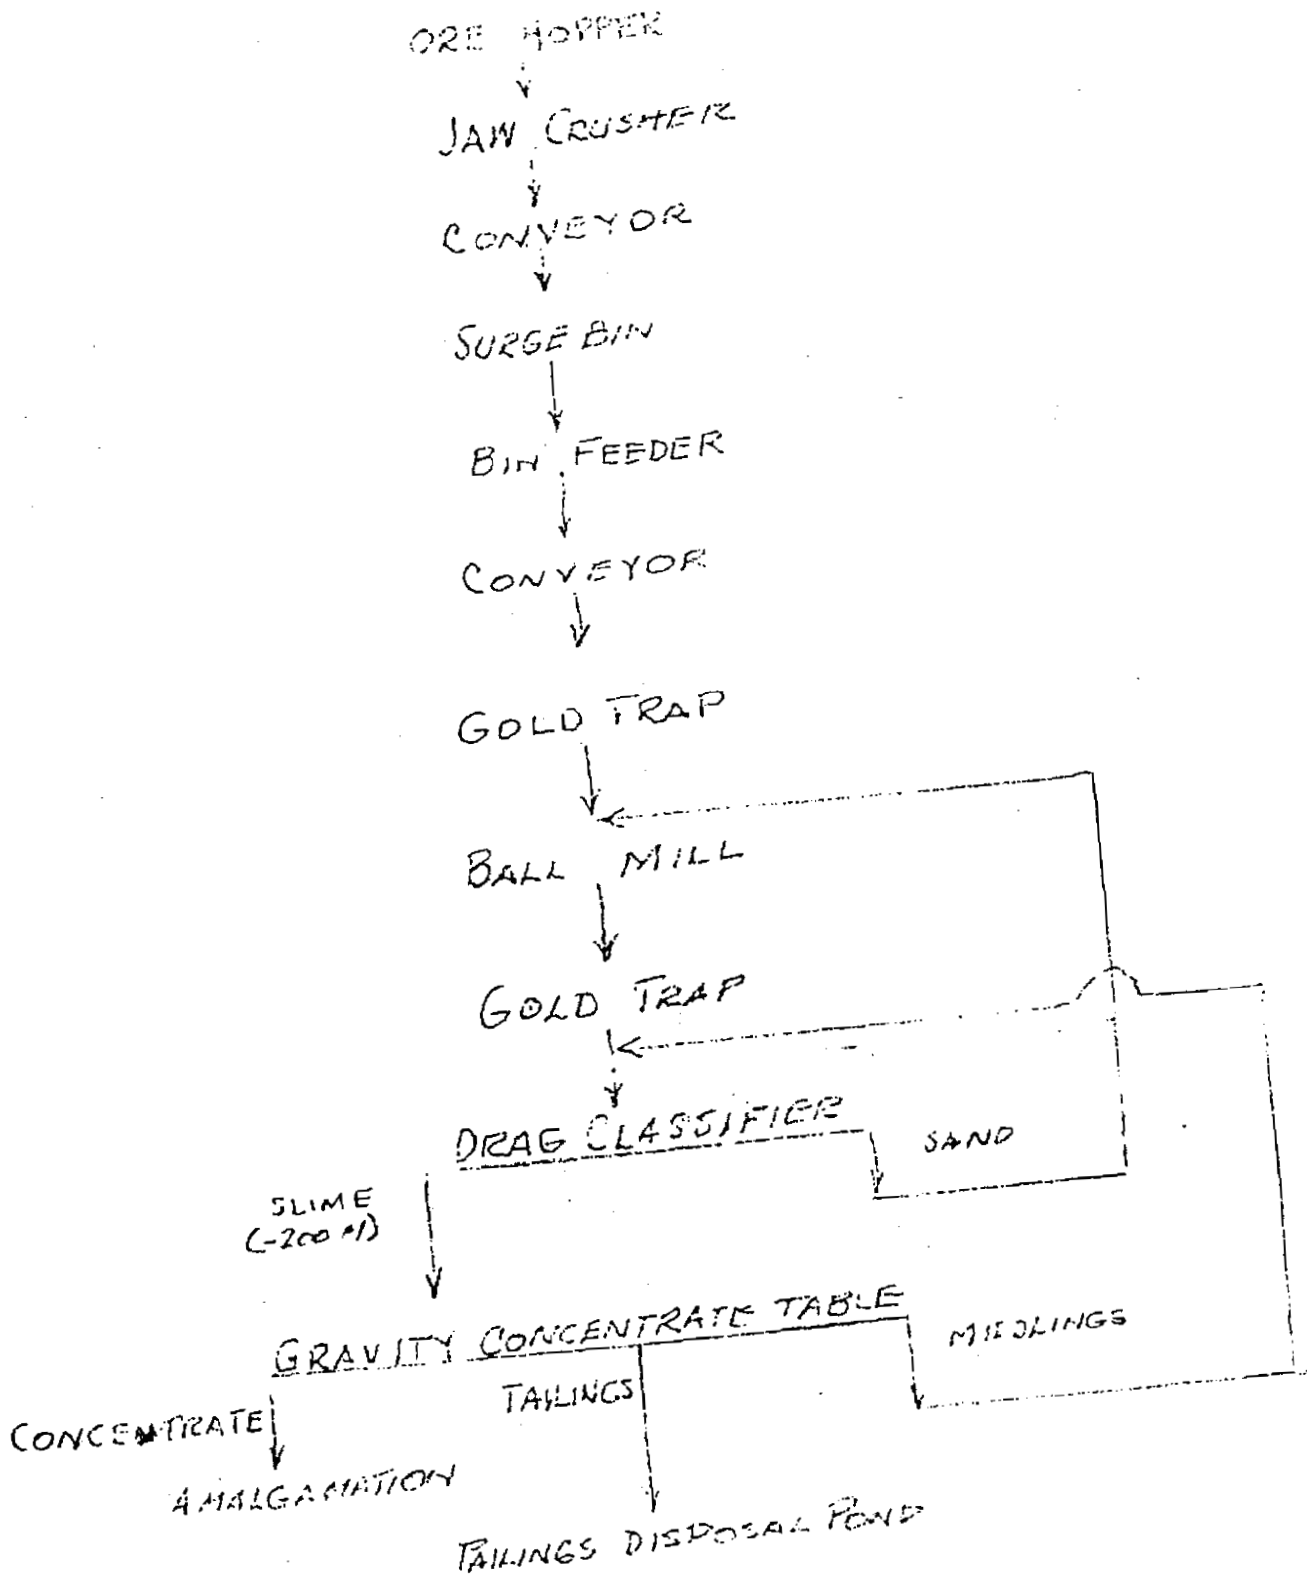 ORE HOPPER
JAW CRUSHER
CONVEYOR
SURGE BIN
BIN FEEDER
CONVEYOR
GOLD TRAP
BALL MILL
GOLD TRAP
DRAG CLASSIFIER
SAND
SLIME
(-200 M)
GRAVITY CONCENTRATE TABLE
MIDLINGS
TAILINGS
CONCENTRATE
AMALGAMATION
TAILINGS DISPOSAL POND